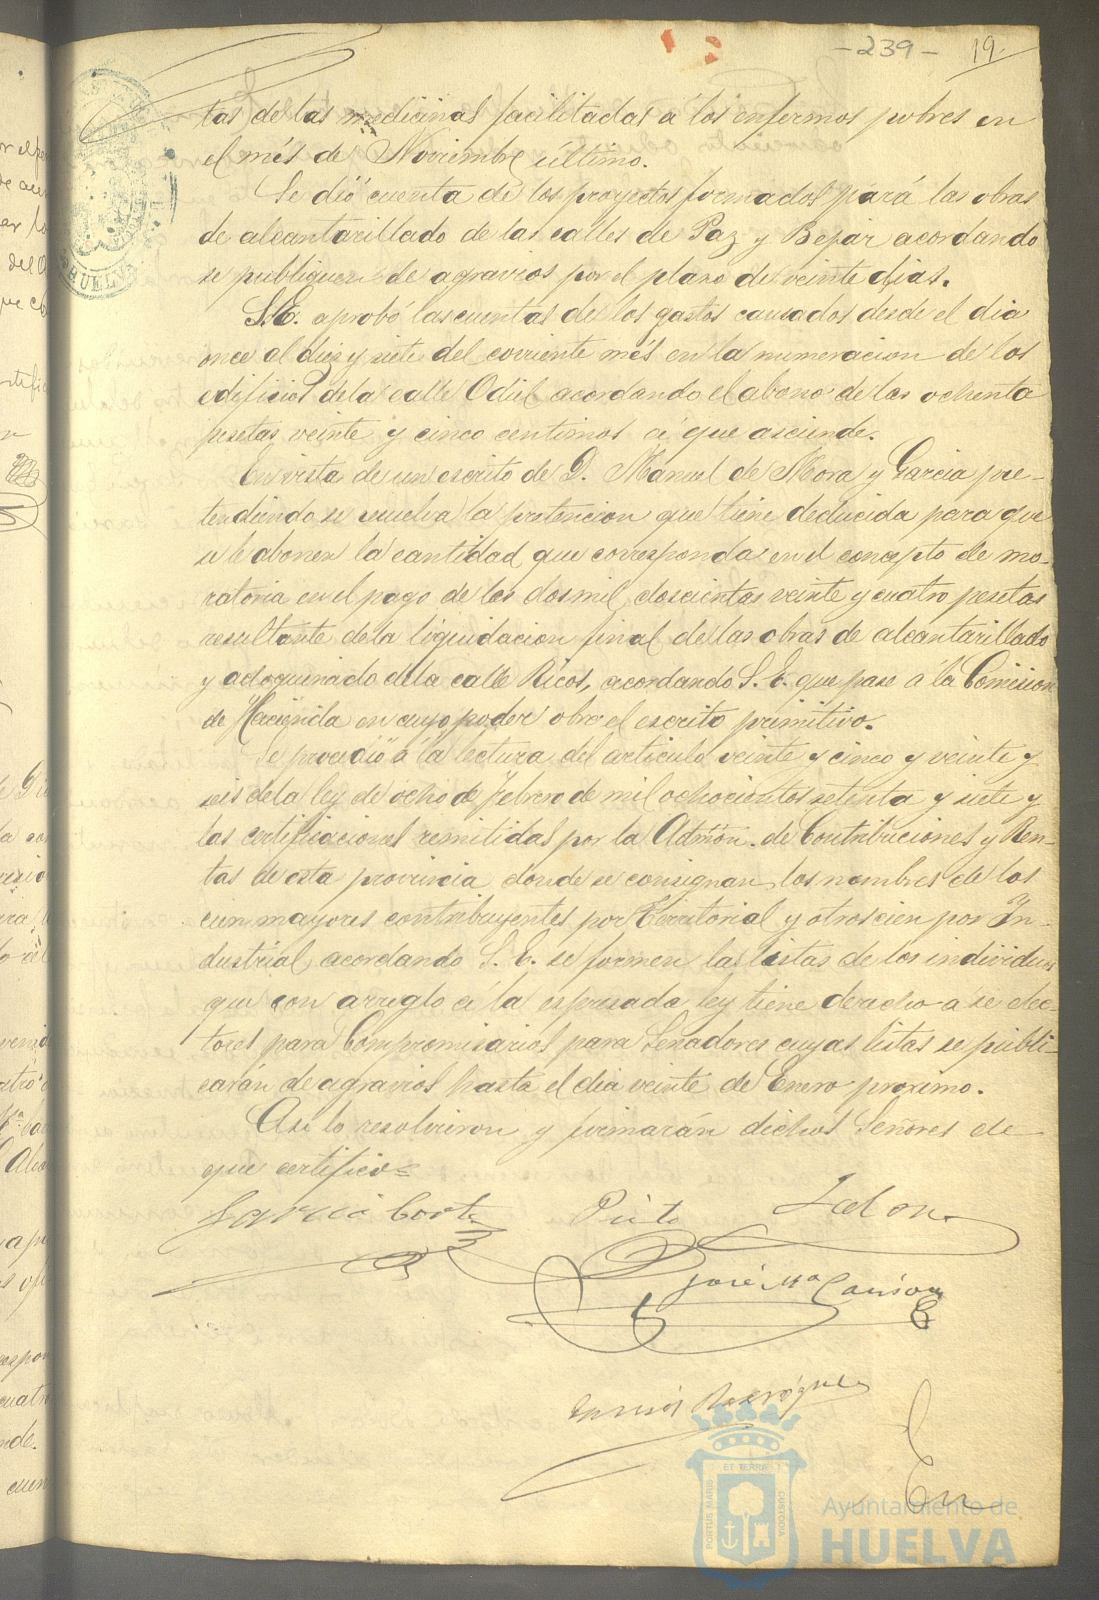 -239- 19
tas de las medicinas facilitadas á los enfermos pobres en
el més de Noviembre último.
Se dió cuenta de los proyectos formados pará las obras
de alcantarillado de las calles de Paz y Bejar acordando
se publiquen de agravios por el plazo de veinte dias.
S.E. aprobó las cuentas de los gastos causados desde el dia
once al diez y siete del corriente més en la numeracion de los
edificios de la calle Odiel acordando el abono de las ochenta
pesetas veinte y cinco centimos á que asciende.
En vista de un escrito de D. Manuel de Mora y Garcia pre-
tendiendo se resuelva la pretencion que tiene deducida para que
se le abonen la cantidad que corresponda en el concepto de mo-
ratoria en el pago de las dos mil doscientas veinte y cuatro pesetas
resultante de la liquidacion final de las obras de alcantarillado
y adoquinado de la calle Ricos, acordando S. E. que pase á la Comision
de Hacienda en cuyo poder obra el escrito primitivo.
Se procedió á la lectura del articulo veinte y cinco y veinte y
seis de la ley de ocho de Febrero de mil ochocientos setenta y siete y
las certificaciones remitidas por la Admón. de Contribuciones y Ren-
tas de esta provincia donde se consignan los nombres de los
cien mayores contribuyentes por Territorial y otros cien por In-
dustrial, acordando S. E. se formen las listas de los individuos
que con arreglo á la espresada ley tiene derecho a se elec-
tores para Compromisarios para Senadores cuyas listas se publi-
carán de agravios hasta el dia veinte de Enero proximo.
Asi lo resolvieron y firmarán dichos Señores de
que certifico=
Garcia Cortes Pinto Jalon
José Mª
Rodríguez
En
HUELVA
PORTUS MARIS
ET TERRÆ
CUSTODIA
Ayuntamiento de
HUELVA